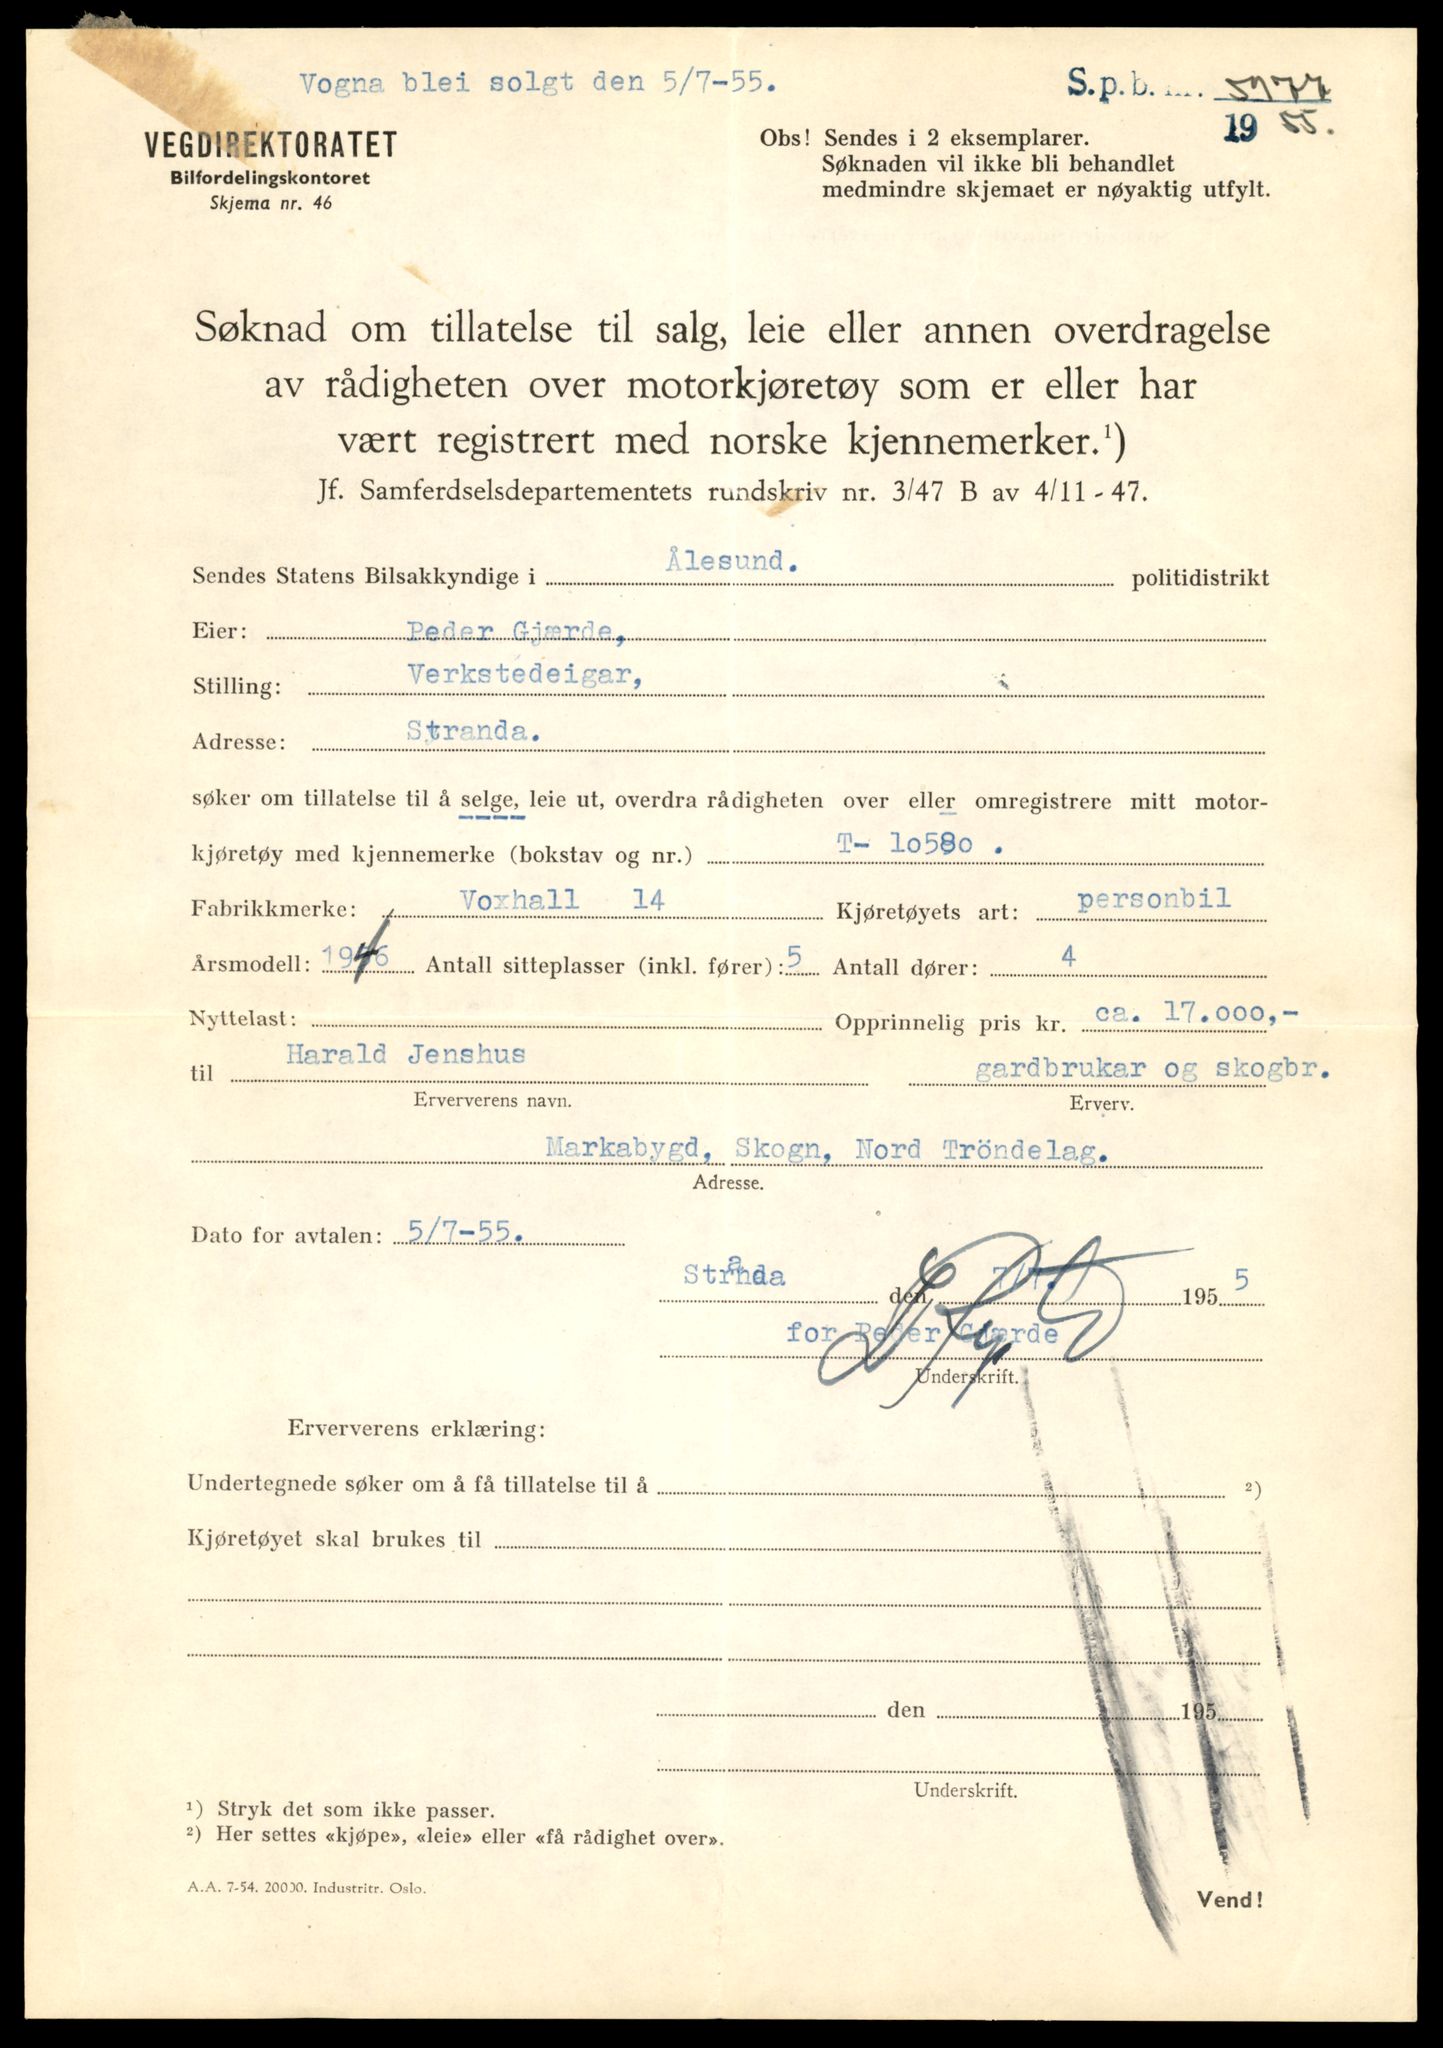 Vogna blei solgt den 5/7-55.
S.p.b. nr. 5977
19 55.
VEGDIREKTORATET
Bilfordelingskontoret
Skjema nr. 46
Obs! Sendes i 2 eksemplarer.
Søknaden vil ikke bli behandlet
medmindre skjemaet er nøyaktig utfylt.
Søknad om tillatelse til salg, leie eller annen overdragelse
av rådigheten over motorkjøretøy som er eller har
vært registrert med norske kjennemerker.¹)
Jf. Samferdselsdepartementets rundskriv nr. 3/47 B av 4/11-47.
Sendes Statens Bilsakkyndige i Ålesund. politidistrikt
Eier: Peder Gjærde,
Stilling: Verkstedeigar,
Adresse: Stranda.
søker om tillatelse til å selge, leie ut, overdra rådigheten over eller omregistrere mitt motor-
kjøretøy med kjennemerke (bokstav og nr.) T- 10580 .
Fabrikkmerke: Voxhall 14 Kjøretøyets art: personbil
Årsmodell: 1946 Antall sitteplasser (inkl. fører): 5 Antall dører: 4
Nyttelast: Opprinnelig pris kr. ca. 17.000,-
til Harald Jenshus gardbrukar og skogbr.
Erververens navn. Erverv.
Markabygd, Skogn, Nord Tröndelag.
Adresse.
Dato for avtalen: 5/7-55.
Stranda den 7/7. 1955
for Peder Gjærde
Underskrift.
Erververens erklæring:
Undertegnede søker om å få tillatelse til å ²)
Kjøretøyet skal brukes til
den 195
Underskrift.
¹) Stryk det som ikke passer.
²) Her settes «kjøpe», «leie» eller «få rådighet over».
A.A. 7-54. 20000. Industritr. Oslo.
Vend!